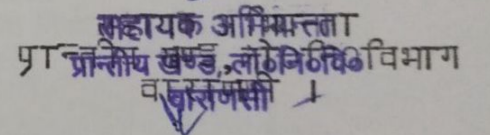 सहायक अभियन्ता
प्रान्तीय खण्ड, लो०नि०वि० विभाग
वाराणसी